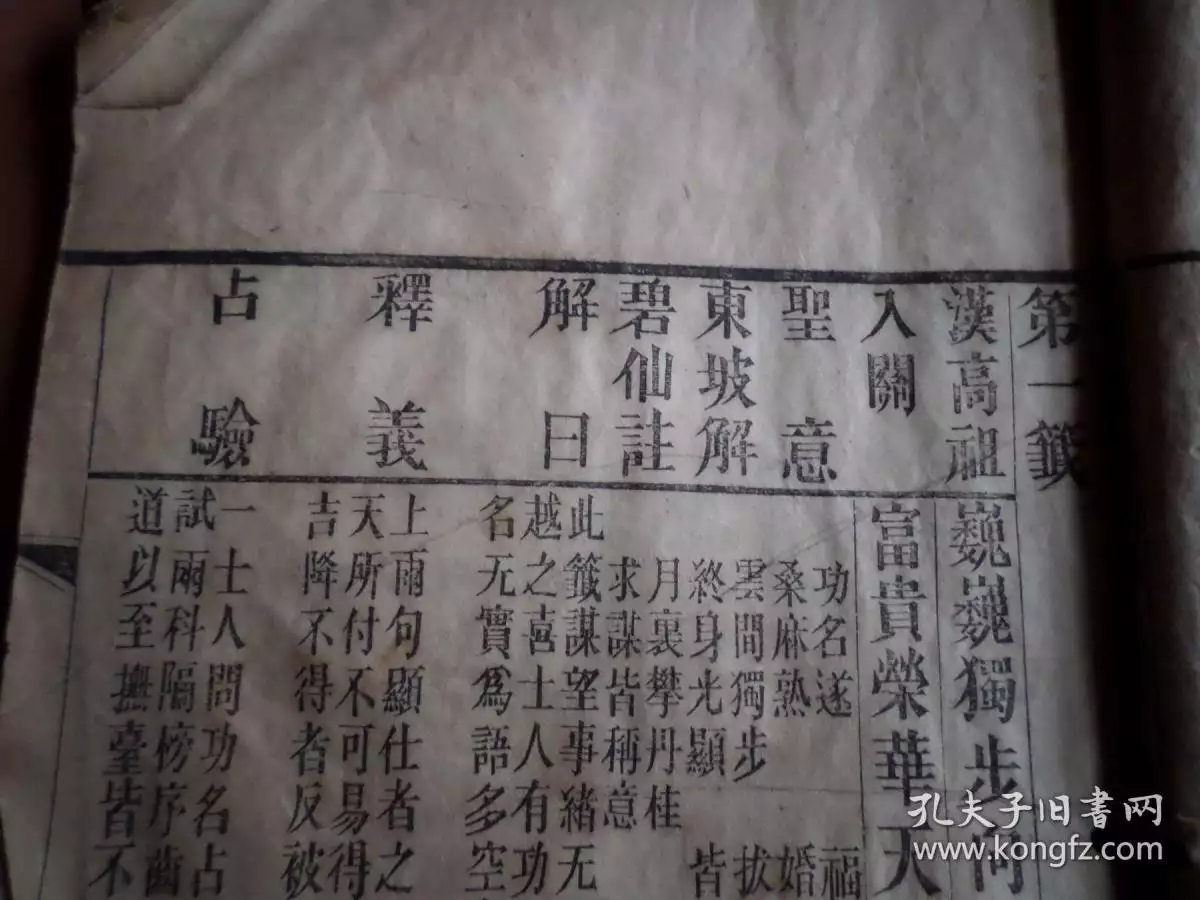 第一籤
漢高祖
巍巍獨步向
入關
富貴榮華天
聖意
功名遂 福
桑麻熟 婚
東坡解
雲間獨步 拔
終身光顯 皆
碧仙註
月裏攀丹桂
求謀皆稱意
解曰
此籤謀望事緒无
越之喜士人有功
名无實爲語多空
釋義
上兩句顯仕者之
天所付不可易得
吉降不得者反被
占驗
一士人問功名占
試兩科隔榜序齒
道以至撫臺皆不
孔夫子旧书网
www.kongfz.com